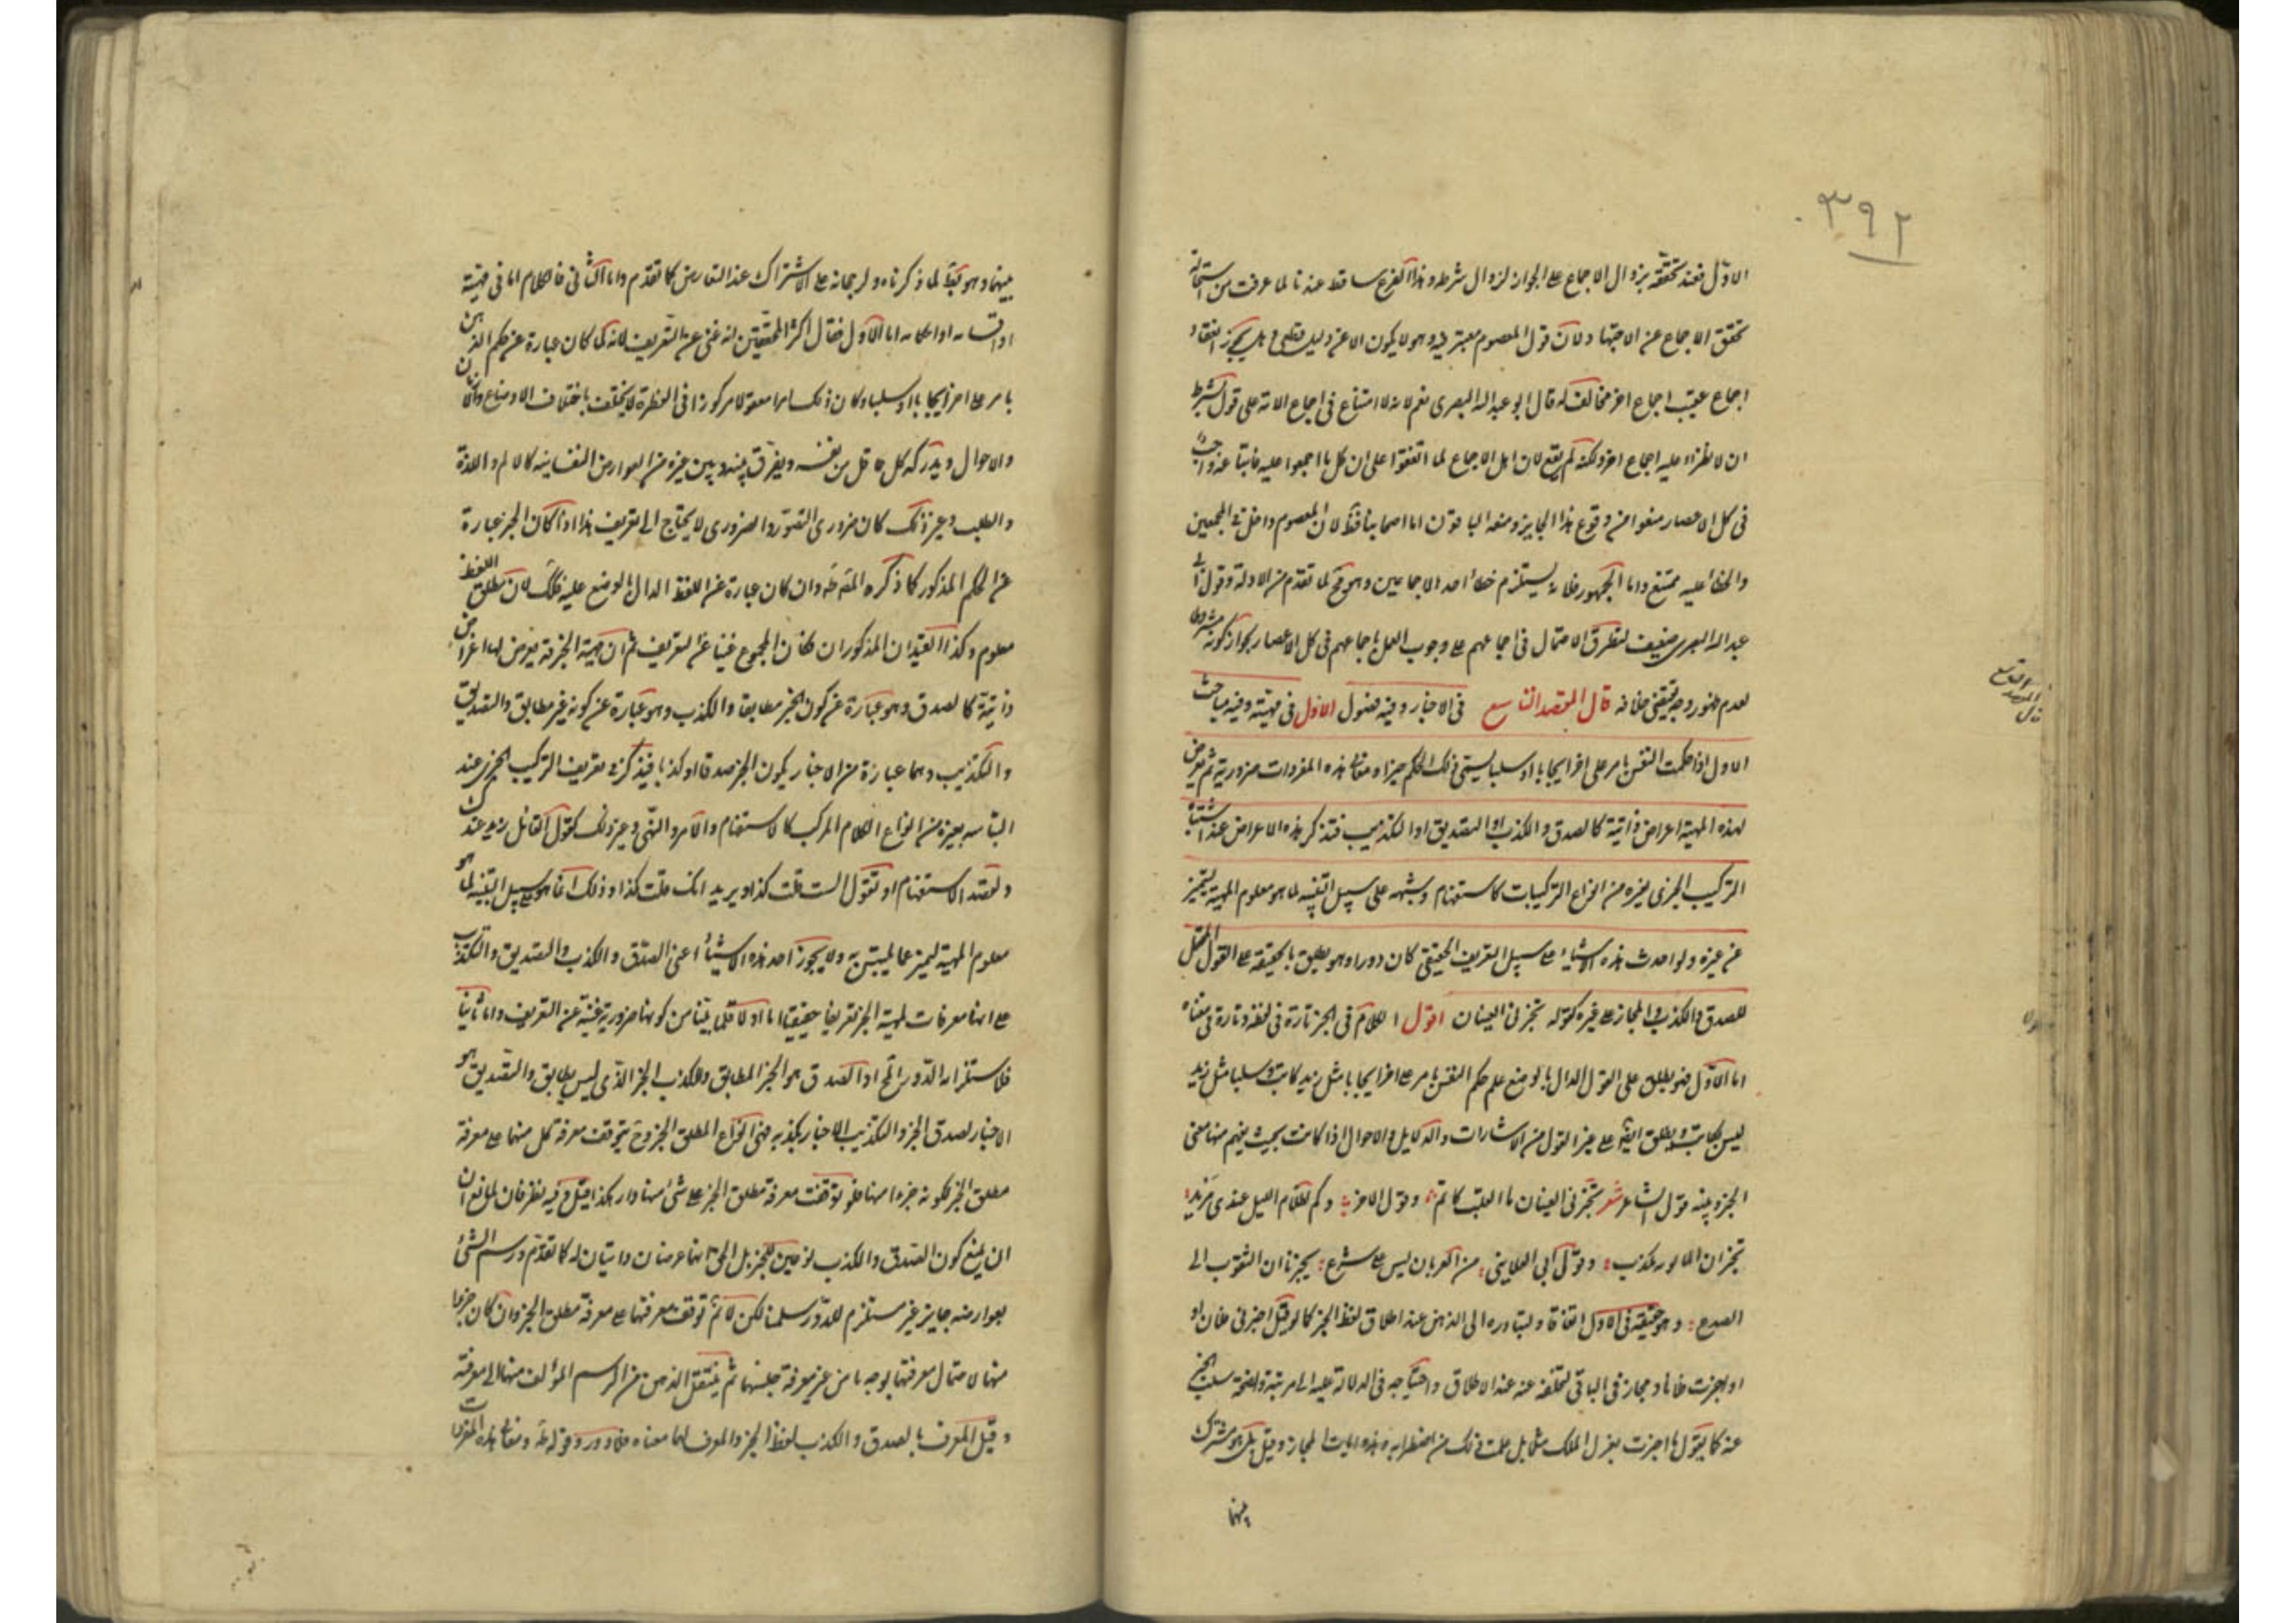 ٣٩٢
الاول فعند تحققه يزوال الاجماع على الجواز لزوال شرطه وهذا الفرع ساقط عندنا لما عرفت من استحالة
تحقق الاجماع عن الاجتهاد ولان قول المعصوم معتبر فيه وهو لا يكون الا عن دليل قطعى وهل يجوز انعقاد
اجماع عقيب اجماع اخر مخالف له قال ابو عبد الله البصرى نعم لانه لا امتناع فى اجماع الامة على قول بشرط
ان لا يطرء عليه اجماع اخر ولكنه لم يقع لان اهل الاجماع لما اتفقوا على ان كل ما اجمعوا عليه فانه
فى كل الاعصار منعوا من وقوع هذا الجايز ومنعه الباقون اما اصحابنا فلان المعصوم داخل فى المجمعين
والخطأ عليه ممتنع واما الجمهور فلانه يستلزم خطأ احد الاجماعين وهو مح لما تقدم من الادلة وقول ابى
عبد الله البصرى ضعيف لتطرق الاحتمال فى اجماعهم على وجوب العمل باجماعهم فى كل الاعصار بجواز كونه مشروطا
لعدم ظهور وجه يقتضى خلافه قال المقصد التاسع فى الاخبار وفيه فصول الاول فى مهيته وفيه مباحث
الاول اذا حكمت النفس بامر على اخر ايجابا او سلبا يسمى ذلك الحكم خبرا ومعانى هذه المفردات ضرورية ثم يعرض
لهذه المهية اعراض ذاتية كالصدق والكذب او التصديق او التكذيب فتذكر هذه الاعراض عند اشتباه
التركيب الخبرى بغيره من انواع التركيبات كاستفهام وشبهه على سبيل التنبيه لما هو معلوم المهية ليتميز
عن غيره ولو اخذت هذه الاشياء على سبيل التعريف الحقيقى كان دورا وهو يطلق بالحقيقة على القول المحتمل
للصدق والكذب والمجاز على غيره كقوله تخبرنى العينان اقول الكلام فى الخبر تارة فى لفظه وتارة فى معناه
اما الاول فهو يطلق على القول الدال بالوضع على حكم النفس بامر على اخر ايجابا مثل زيد كاتب او سلبا مثل زيد
ليس بكاتب ويطلق ايضا على غير القول من الاشارات والدلايل والاحوال اذا كانت بحيث يفهم منها معنى
الخبر ومنه قول الشاعر شعر تخبرنى العينان ما القلب كاتم وقول الاخر وكم لظلام الليل عندى من يد
تخبر ان المانوية تكذب وقول ابى العلا نبى من الغربان ليس على شرع يخبرنا ان الشعوب الى
الصدع وهو حقيقة فى الاول اتفاقا ولتبادره الى الذهن عند اطلاق لفظ الخبر كما لو قيل اخبرنى فلان او
او اخبرت فلانا ومجاز فى الباقى لتخلفه عنه عند الاطلاق واحتياجه فى الدلالة عليه الى قرينة ولصحة سلب الخبر
عنه كما يقول ما اخبرت بعزل الملك مثلا بل علمت ذلك من اضطرابه وهذه ايات المجاز وقيل بل هو مشترك
بينهما
المقصد التاسع
بينهما وهو بط لما ذكرناه ولرجحانه على الاشتراك عند التعارض كما تقدم واما الثانى فالكلام اما فى مهيته
او اقسامه او احكامه اما الاول فقال اكثر المحققين انه غنى عن التعريف لانه لما كان عبارة عن حكم الذهن
بامر على اخر ايجابا او سلبا وكان ذلك امرا معقولا مركوزا فى الفطرة لا يختلف باختلاف الاوضاع والازمان
والاحوال ويدركه كل عاقل من نفسه ويفرق بينه وبين غيره من العوارض النفسانية كالالم واللذة
والطلب وغير ذلك كان ضرورى التصور والضرورى لا يحتاج الى تعريف هذا اذا كان الخبر عبارة
عن الحكم المذكور كما ذكره المص طه وان كان عبارة عن اللفظ الدال بالوضع عليه فكك لان مطلق اللفظ
معلوم وكذا القيدان المذكوران فكان المجموع غنيا عن التعريف ثم ان مهية الخبر قد يعرض لها اعراض
ذاتية كالصدق وهو عبارة عن كون الخبر مطابقا والكذب وهو عبارة عن كونه غير مطابق والتصديق
والتكذيب وهما عبارة من الاخبار بكون الخبر صدقا او كذبا فيذكر فى تعريف التركيب الخبرى عند
التباسه بغيره من انواع الكلام المركب كالاستفهام والامر والنهى وغير ذلك كقول القائل زيد عندك
ولقصد الاستفهام او تقول الست قلت كذا ويريد انك قلت كذا وذلك انما هو على سبيل التنبيه لما هو
معلوم المهية ليتميز عما يلتبس به ولا يجوز اخذ هذه الاشياء اعنى الصدق والكذب والتصديق والتكذيب
على انها معرفات لمهية الخبر تعريفا حقيقيا اما اولا فلما بينا من كونها ضرورية غنية عن التعريف واما ثانيا
فلاستلزامه الدور المح اذ الصدق هو الخبر المطابق والكذب الخبر الذى ليس بمطابق والتصديق هو
الاخبار بصدق الخبر والتكذيب الاخبار بكذبه فهى انواع المطلق الخبر وح يتوقف معرفة كل منها على معرفة
مطلق الخبر لكونه جزءا منها فلو توقفت معرفة مطلق الخبر على شئ منها دار هكذا قيل وفيه نظر فان لمانع ان
ان يمنع كون الصدق والكذب نوعين للخبر بل الحق انهما عرضان ذاتيان له كما تقدم ورسم الشئ
بعوارضه جايز غير مستلزم للدور سلمنا لكن لا نم توقف معرفتها على معرفة مطلق الخبر وان كان جزءا
منها لاحتمال معرفتها بوجه ما من غير معرفة جنسها ثم ينتقل الذهن من الرسم المؤلف منها الى معرفة
وقيل المعرف بالصدق والكذب لفظ الخبر والمعرف لهما معناه فلا دور وقوله طه ومعانى هذه المفردات